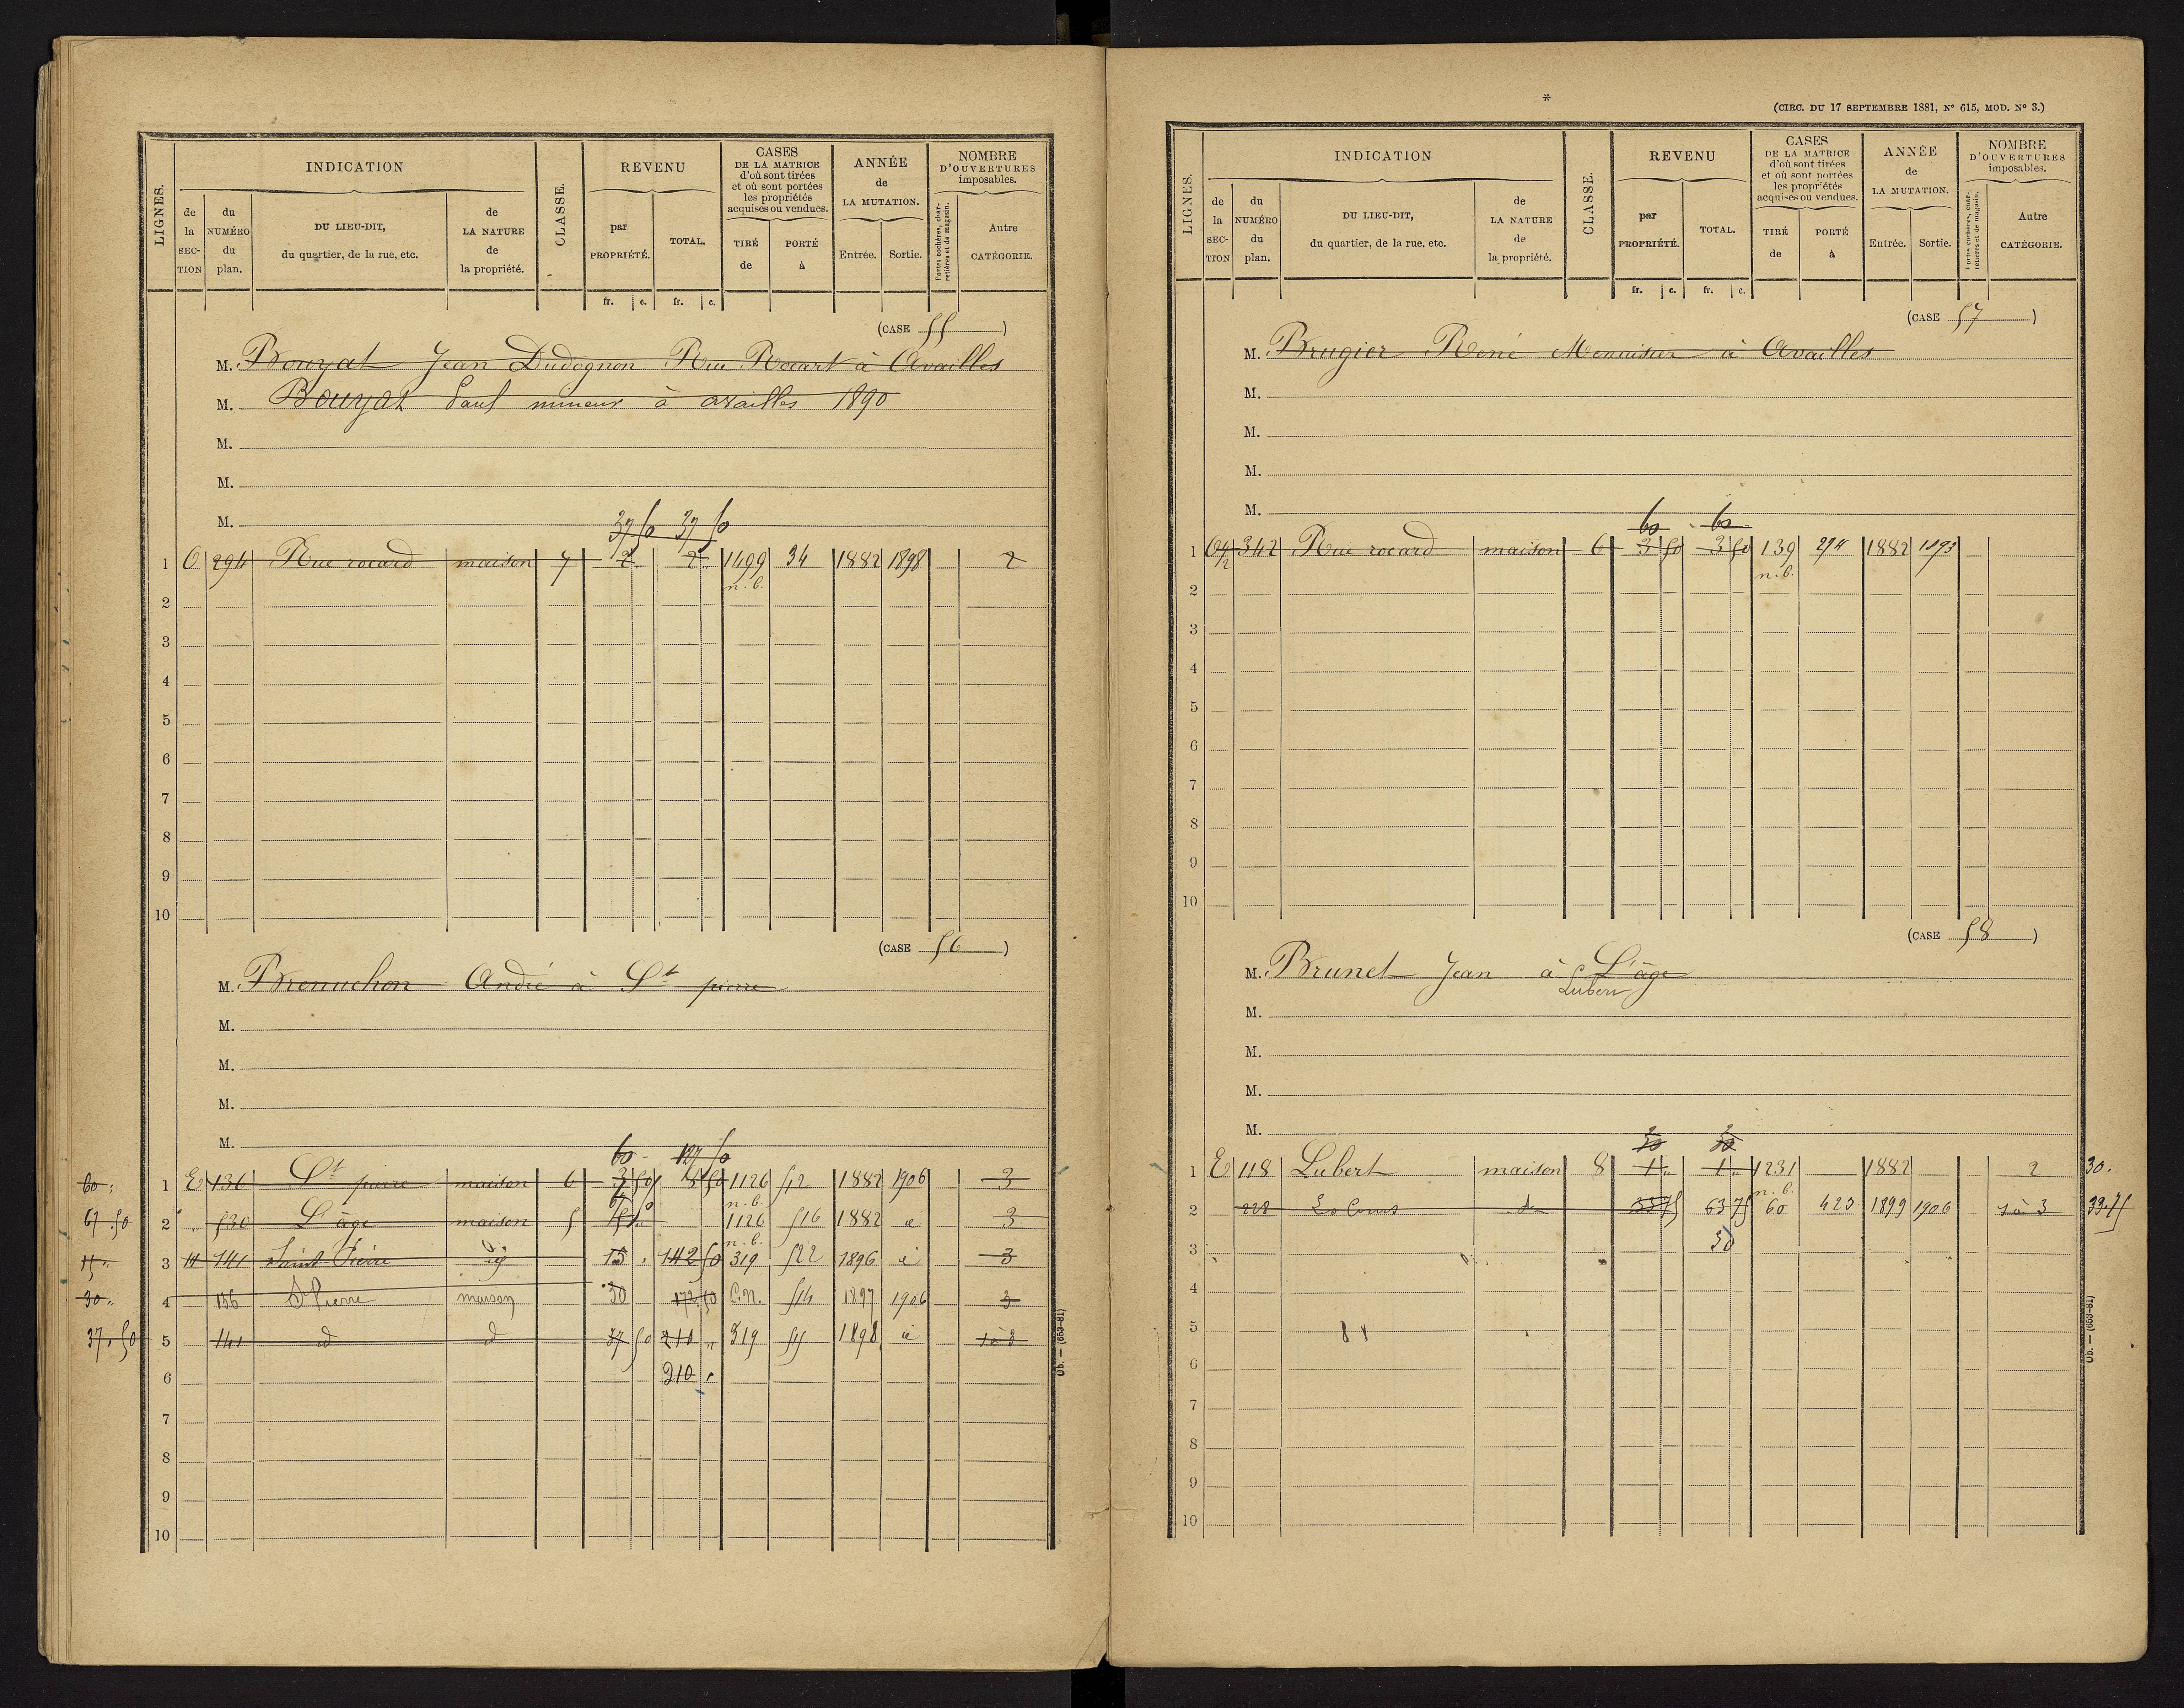 LIGNES.
INDICATION
de la SECTION
du NUMÉRO du plan.
DU LIEU-DIT, du quartier, de la rue, etc.
de LA NATURE de la propriété.
CLASSE.
REVENU
par PROPRIÉTÉ.
TOTAL.
fr. c. fr. c.
CASES DE LA MATRICE d'où sont tirées et où sont portées les propriétés acquises ou vendues.
TIRÉ de
PORTÉ à
ANNÉE de LA MUTATION.
Entrée. Sortie.
NOMBRE D'OUVERTURES imposables.
Portes cochères, charretières et de magasin.
Autre CATÉGORIE.
(CASE 55)
M. Bouyat Jean Dudognon Rue Rocart à Availles
M. Bouyat Paul mineur à availles 1890
M.
M.
M.
37 50 37 50
1 O 294 Rue rocard maison 7 2 " 2 " 1499 34 1882 1898 2
n.b.
2
3
4
5
6
7
8
9
10
(CASE 56)
M. Brenuchon André à St pierre
M.
M.
M.
M.
60 - 127 50
60 " 1 E 136 St pierre maison 6 3 50 18 50 1126 512 1882 1906 3
67 50 n.b.
67.50 2 " 530 L'âge maison 5 15 " 1126 516 1882 d 3
n.b.
15 " 3 " 141 Saint Pierre id 15 " 142 50 319 522 1896 d 3
30 " 4 136 St Pierre maison 30 172.50 C.N. 514 1897 1906 3
37.50 5 141 d d 37 50 210 " 319 511 1898 d 1 à 3
6 210 "
7
8
9
10
Ob. — (653-81)
*
(CIRC. DU 17 SEPTEMBRE 1881, N° 615, MOD. N° 3.)
LIGNES.
INDICATION
de la SECTION
du NUMÉRO du plan.
DU LIEU-DIT, du quartier, de la rue, etc.
de LA NATURE de la propriété.
CLASSE.
REVENU
par PROPRIÉTÉ.
TOTAL.
fr. c. fr. c.
CASES DE LA MATRICE d'où sont tirées et où sont portées les propriétés acquises ou vendues.
TIRÉ de
PORTÉ à
ANNÉE de LA MUTATION.
Entrée. Sortie.
NOMBRE D'OUVERTURES imposables.
Portes cochères, charretières et de magasin.
Autre CATÉGORIE.
(CASE 57)
M. Brugier René Menuisier à Availles
M.
M.
M.
M.
60 60
1 342 Rue rocard maison 6 3 50 3 50 139 294 1882 1893
n.b.
2
3
4
5
6
7
8
9
10
(CASE 58)
M. Brunet Jean à L'âge
Lubert
M.
M.
M.
M.
30 30
1 E 118 Lubert maison 8 1 " 1 " 1231 1882 2 30.
n.b.
2 228 d 33 75 63 75 60 423 1899 1906 1 à 3 33.75
3 30
4
5
6
7
8
9
10
Ob. — (653-81)